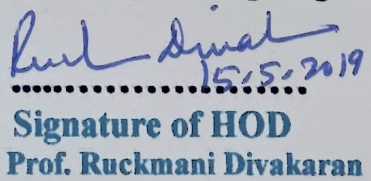 15.5.2019
Signature of HOD
Prof. Ruckmani Divakaran